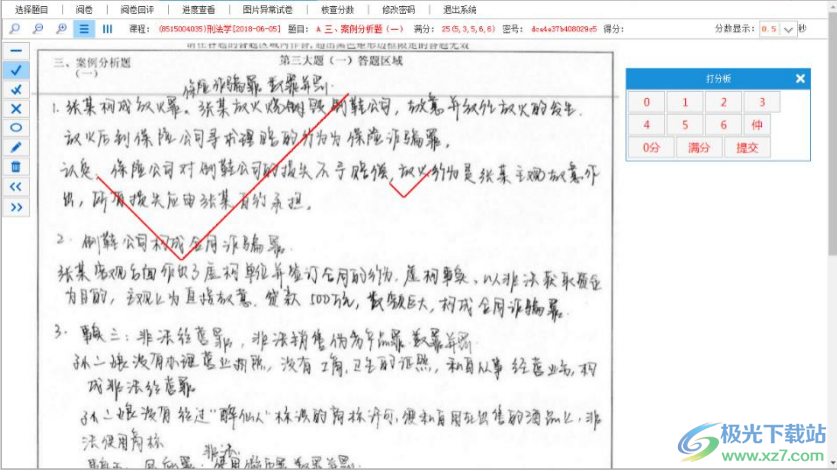 选择题目 阅卷 阅卷回评 进度查看 图片异常试卷 核查分数 修改密码 退出系统
课程: (8515004035)刑法学[2018-06-05] 题目: A 三、案例分析题(一) 满分: 25(5,3,5,6,6) 密号: dce4e37b408029c5 得分: 分数显示: 0.5 秒
三、案例分析题
(一)
第三大题(一)答题区域
保险诈骗罪 数罪并罚.
1. 张某构成放火罪。张某放火烧制鞋公司, 故意并放火的发生.
放火后到保险公司寻求理赔的行为为保险诈骗罪。
保险公司对制鞋公司的损失不予赔偿, 放火行为是张某主观故意作
出, 所有损失应由张某自行承担。
2. 制鞋公司构成合同诈骗罪.
张某 虚构单位并签订合同的行为. 虚构事实、以非法获取资金
为目的, 主观上为直接故意. 贷款500万元, 数额巨大, 构成合同诈骗罪.
3. 事实三: 非法经营罪, 非法销售伪劣产品罪 数罪并罚
孙二娘没有办理营业执照, 没有工商、卫生的证照, 私自从事经营业务, 构
成非法经营罪
孙二娘没有经过“醉仙人”标注的商标许可, 便私自用在出售的酒品上, 非
法使用商标
非法
打分板
0 1 2 3
4 5 6 仲
0分 满分 提交
极光下载站
www.xz7.com